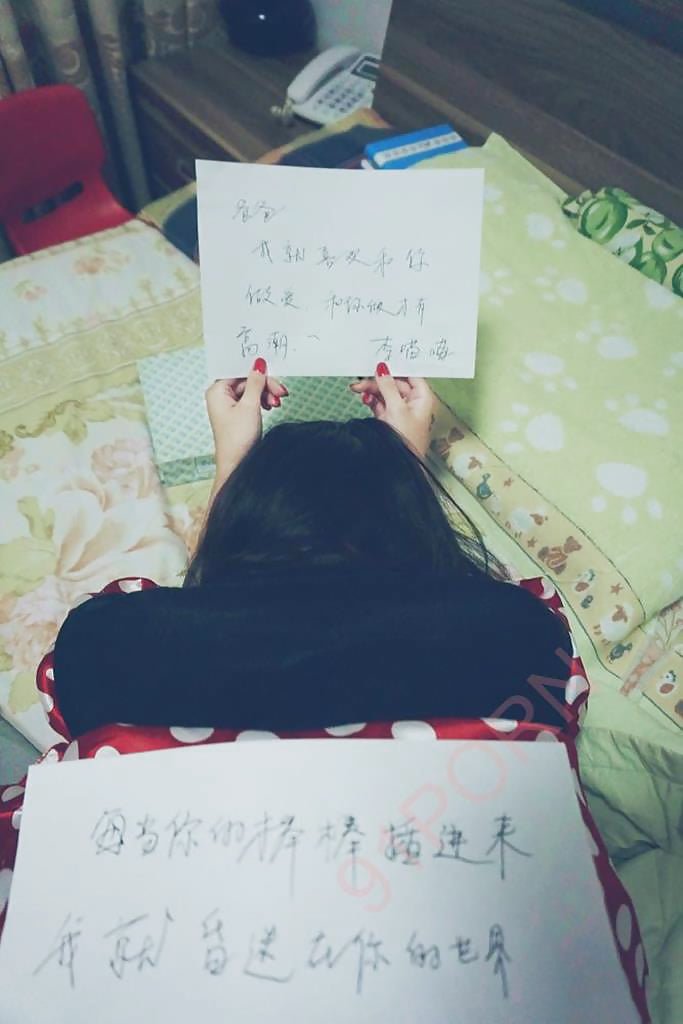 爸爸
我就喜欢和你
做爱，和你做才有
高潮.
每当你的棒棒插进来
我就昏迷在你的世界
91PORN